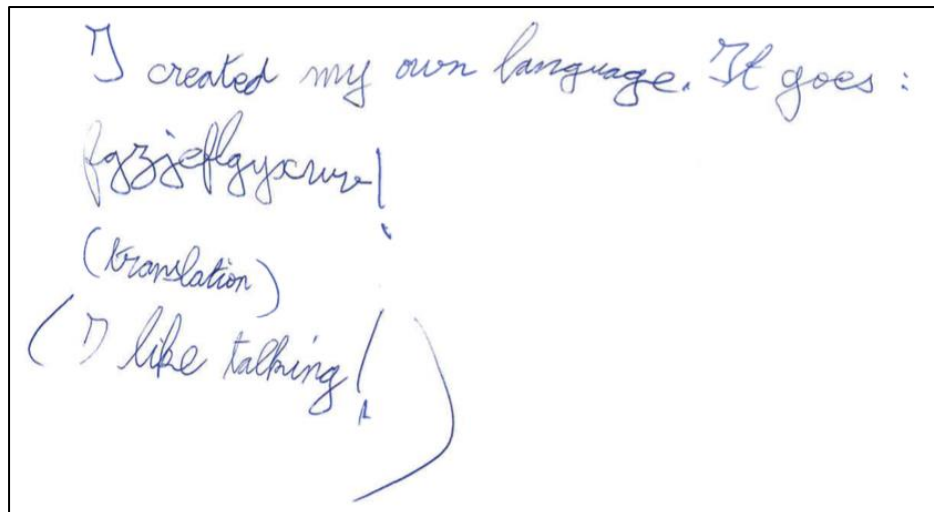 I created my own language. It goes :
fgzjeflgyxruve!
(translation)
(I like talking!)